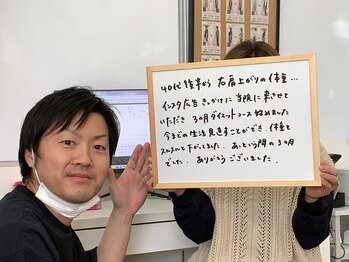 40代後半から 右肩上がりの体重…
インスタ広告きっかけに当院に来させて
いただき 3ヶ月ダイエットコース始めました
今までの生活見直すことができ、体重も
スルスルと下がりました。あっという間の3ヶ月
でした。ありがとうございました。